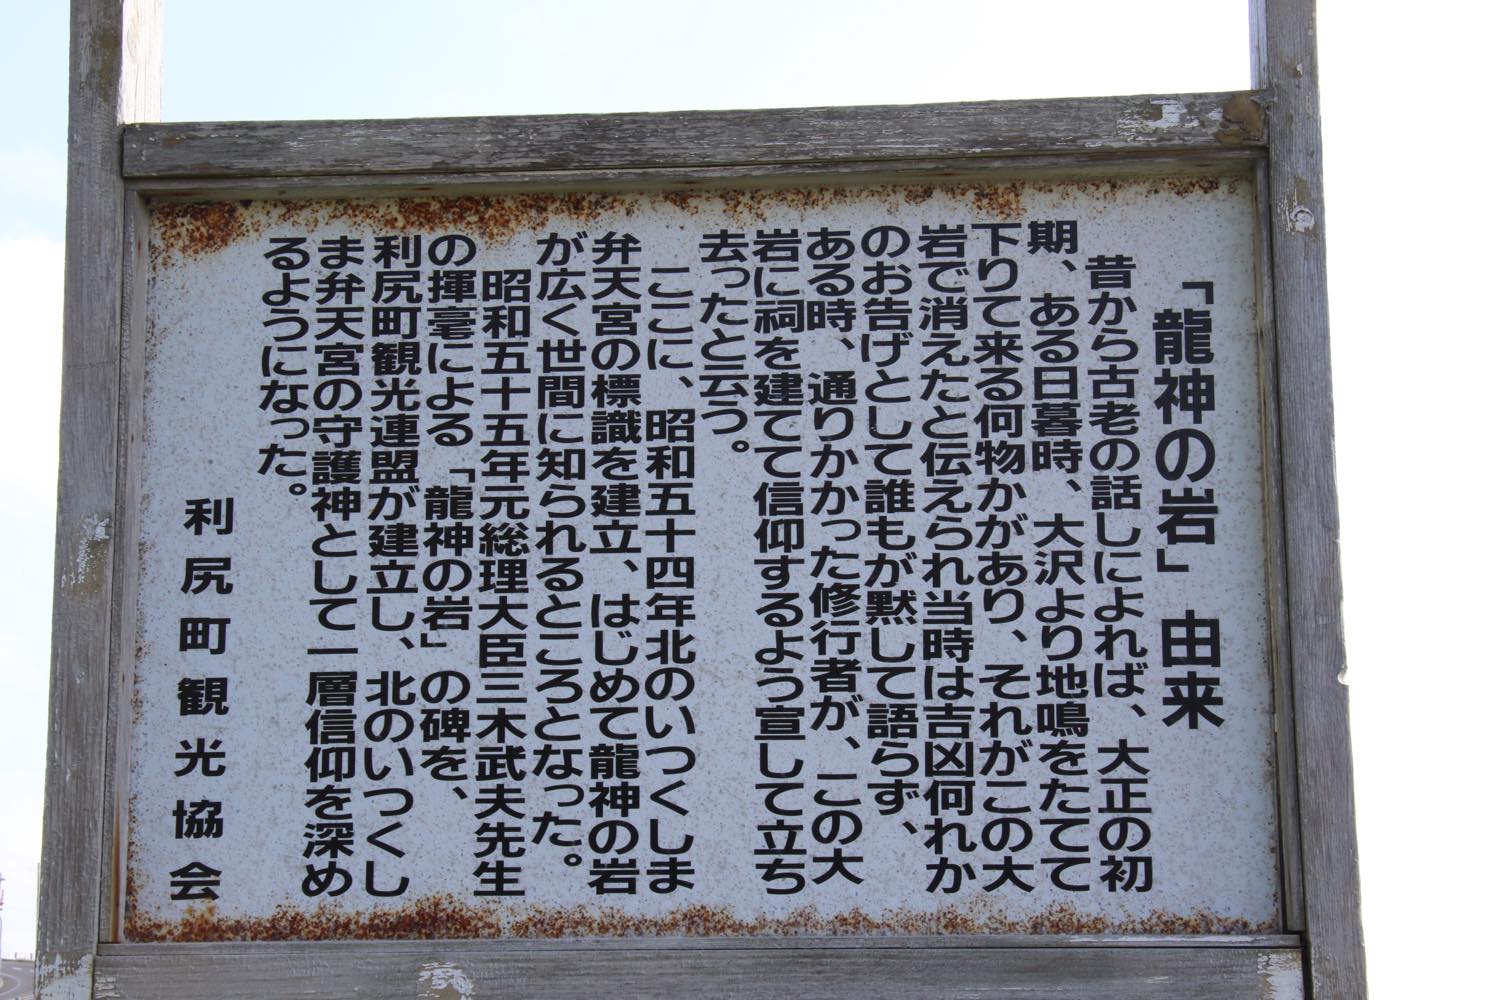 「龍神の岩」 由来
昔から古老の話しによれば、大正の初
期、ある日暮時、大沢より地鳴をたてて
下りて来る何物かがあり、それがこの大
岩で消えたと伝えられ当時は吉凶何れか
のお告げとして誰もが黙して語らず、
ある時、通りかかった修行者が、この大
岩に祠を建てて信仰するよう宣して立ち
去ったと云う。
ここに、昭和五十四年北のいつくしま
弁天宮の標識を建立、はじめて龍神の岩
が広く世間に知られるところとなった。
昭和五十五年元総理大臣三木武夫先生
の揮毫による「龍神の岩」の碑を、
利尻町観光連盟が建立し、北のいつくし
ま弁天宮の守護神として一層信仰を深め
るようになった。
利尻町観光協会